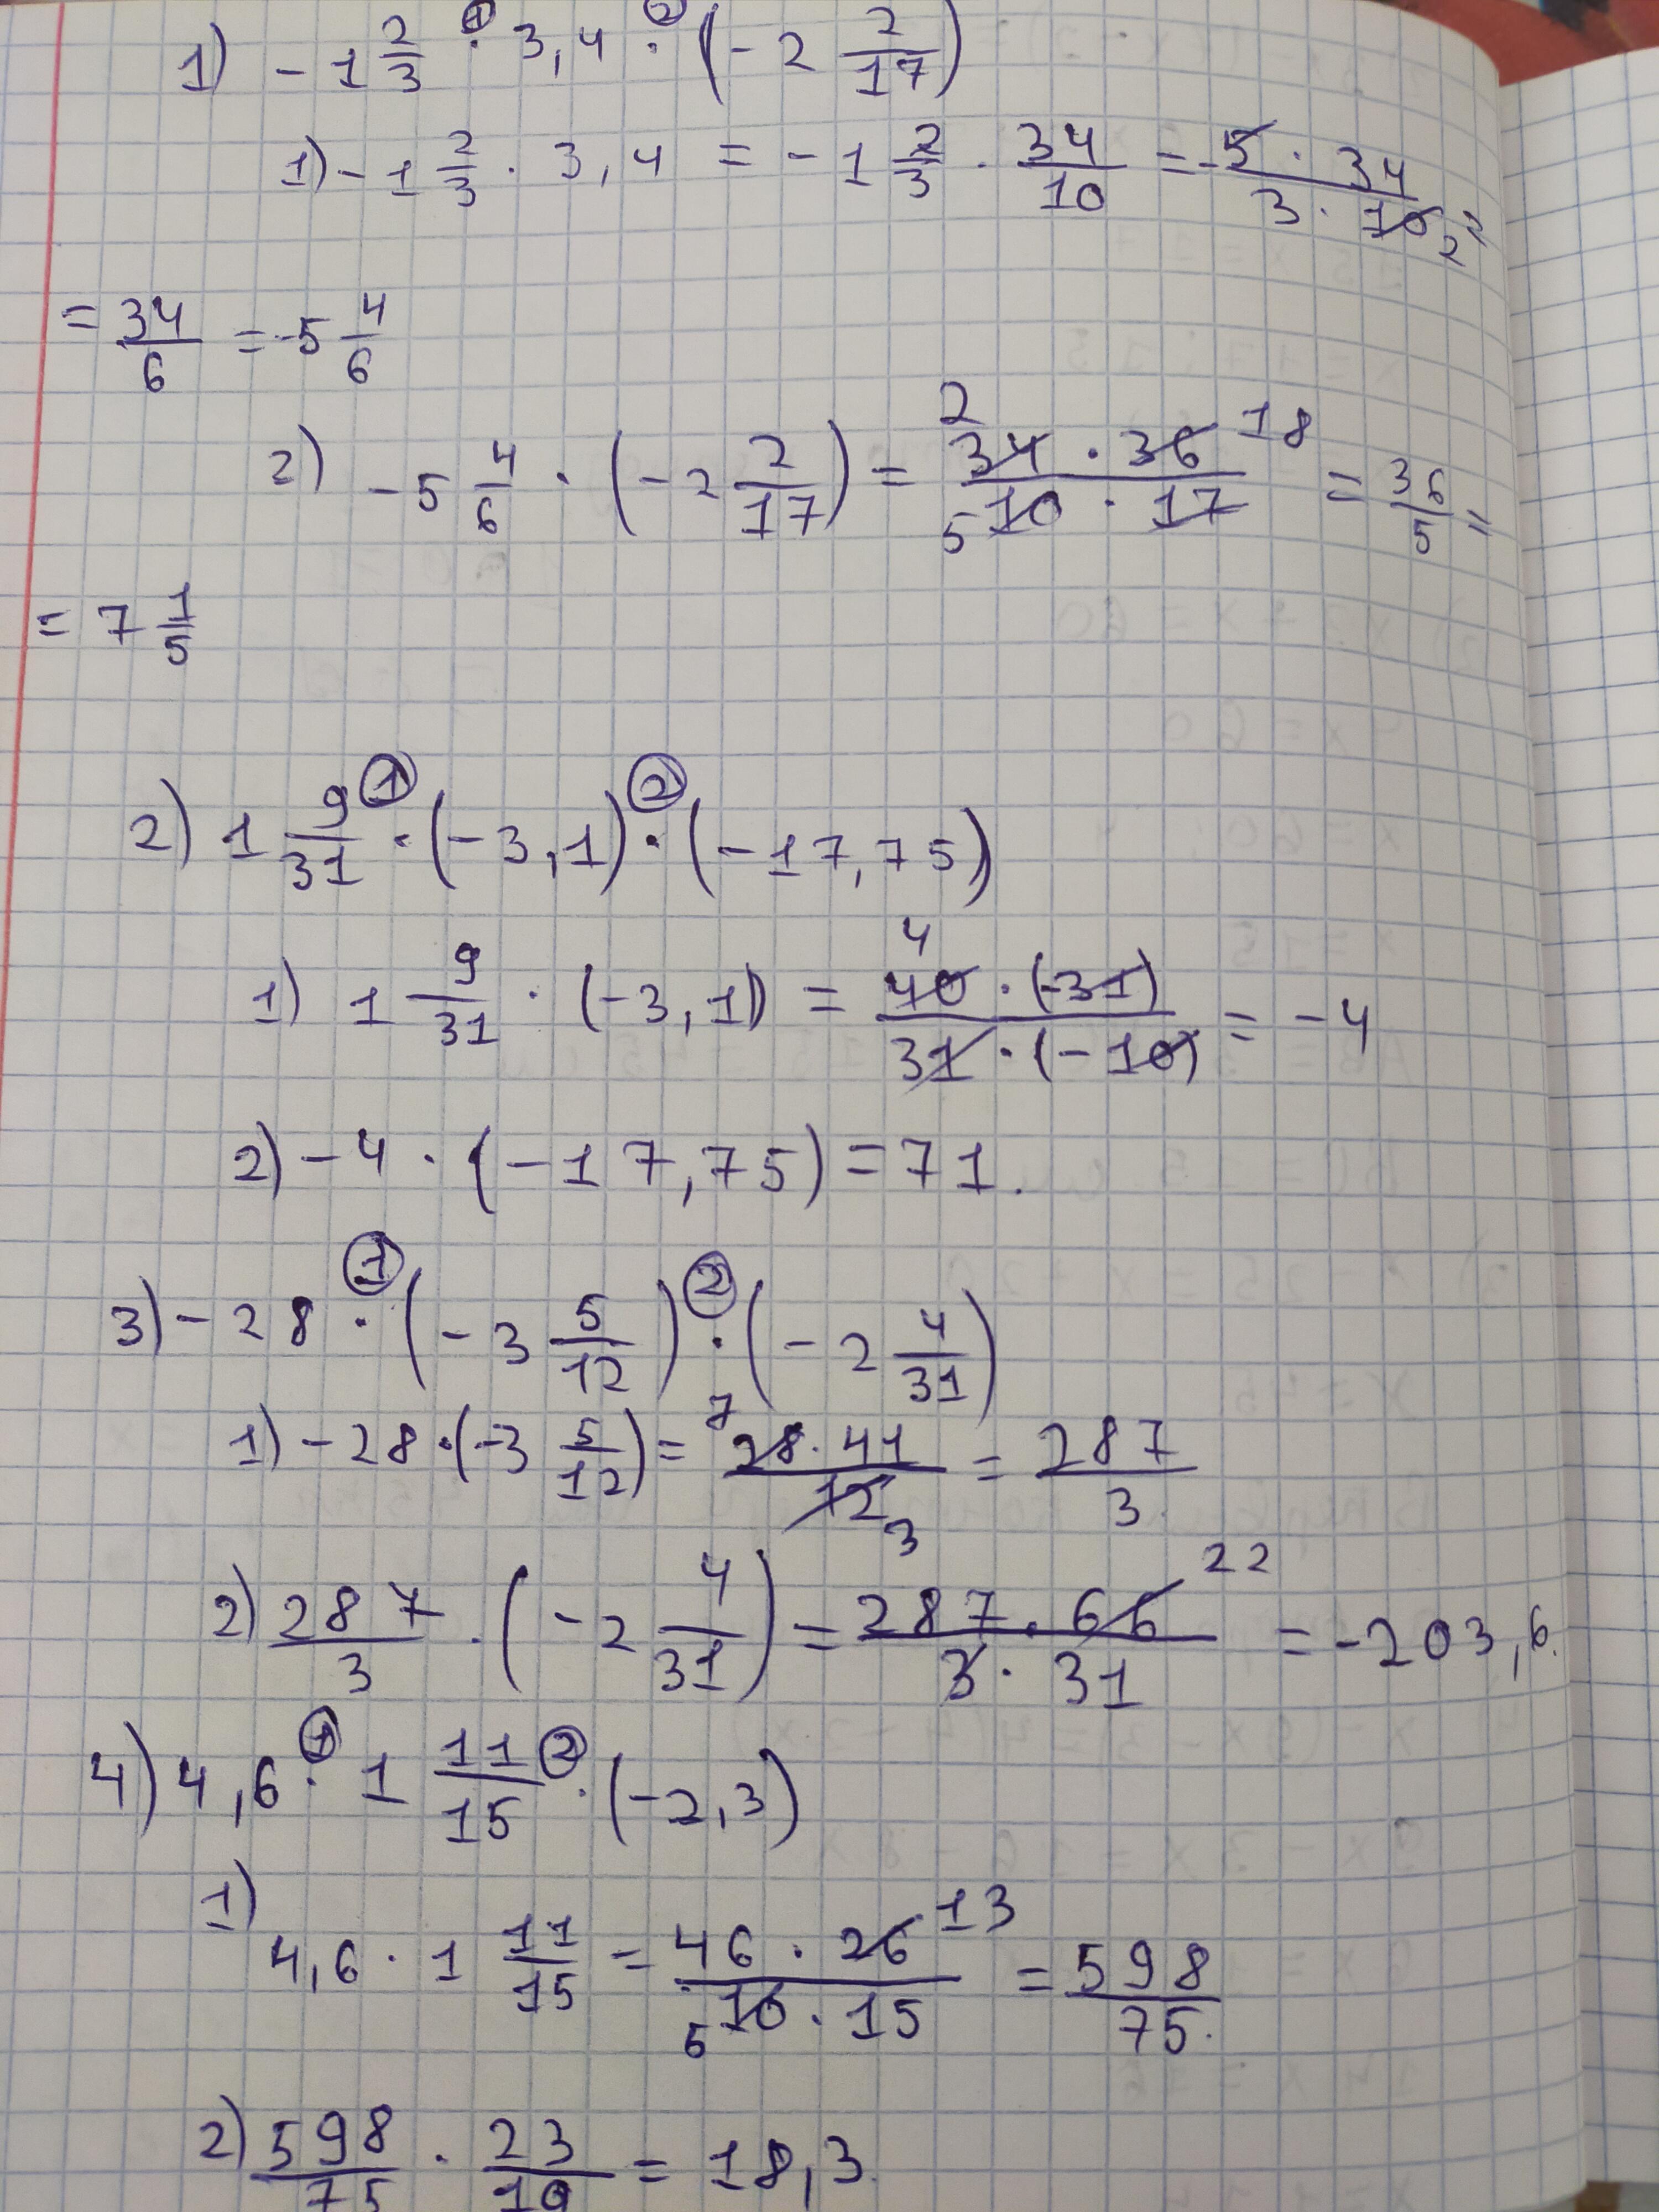 1) -1 2/3 · 3,4 · (-2 2/17)
1) -1 2/3 · 3,4 = -1 2/3 · 34/10 = -5 · 34 / 3 · 10 2 =
= 34/6 = -5 4/6
2) -5 4/6 · (-2 2/17) = 2 34 · 36 18 / 5 10 · 17 = 36/5 =
= 7 1/5
2) 1 9/31 · (-3,1) · (-17,75)
1) 1 9/31 · (-3,1) = 4 40 · (-31) / 31 · (-10) = -4
2) -4 · (-17,75) = 71.
3) -28 · (-3 5/12) · (-2 4/31)
1) -28 · (-3 5/12) = 7 28 · 41 / 12 3 = 287/3
2) 287/3 · (-2 4/31) = 287 · 66 22 / 3 · 31 = -203,6.
4) 4,6 · 1 11/15 · (-2,3)
1)
4,6 · 1 11/15 = 46 · 26 13 / 5 10 · 15 = 598/75.
2) 598/75 · 23/10 = 18,3.